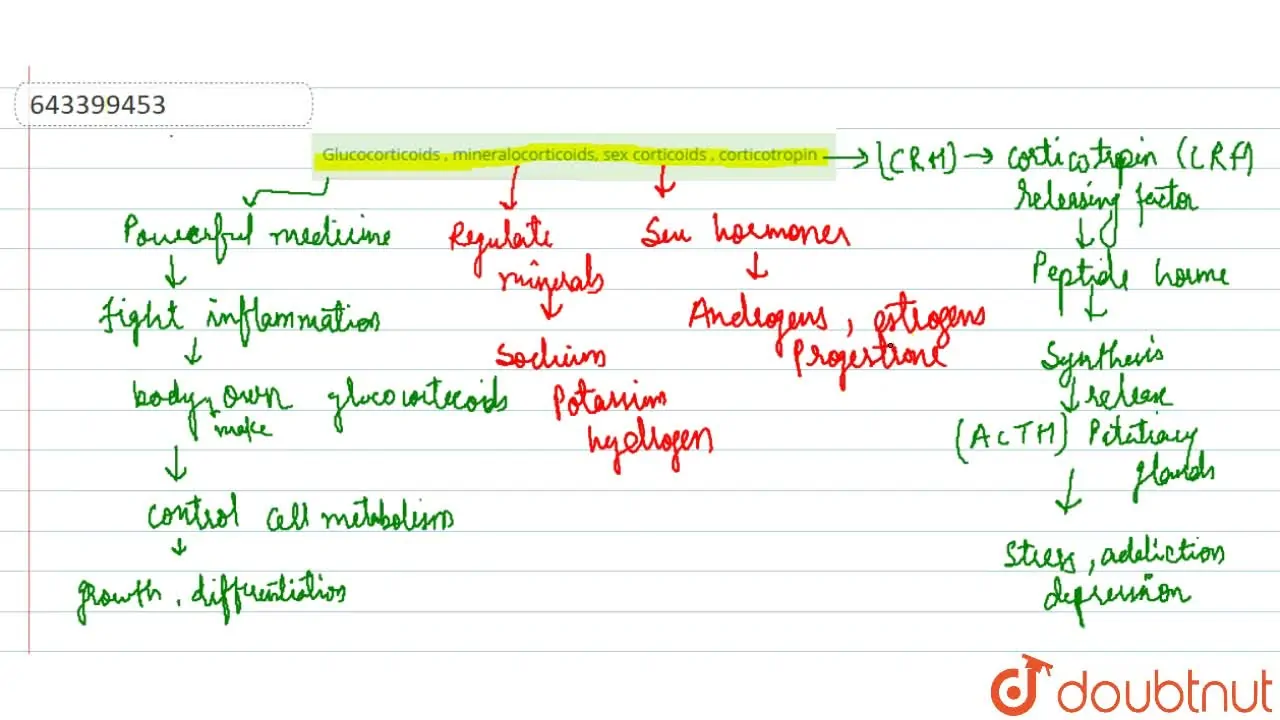 643399453
Glucocorticoids , mineralocorticoids, sex corticoids , corticotropin
(CRH) → corticotropin (CRF)
releasing factor
Peptide horme
Synthesis
release
(ACTH) Pititiary
glands
Stress, addiction
depression
Powerful medicine
Fight inflammation
body, own glucocorticoids
make
control cell metabolism
growth, differentiation
Regulate
minerals
Sodium
Potassium
hydrogen
Sex hormones
Androgens, estrogens
Progestrone
doubtnut